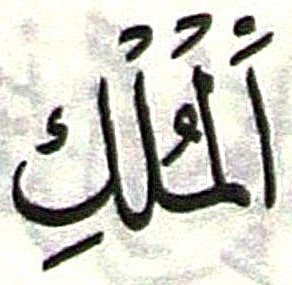 اَلْمُلْكِ